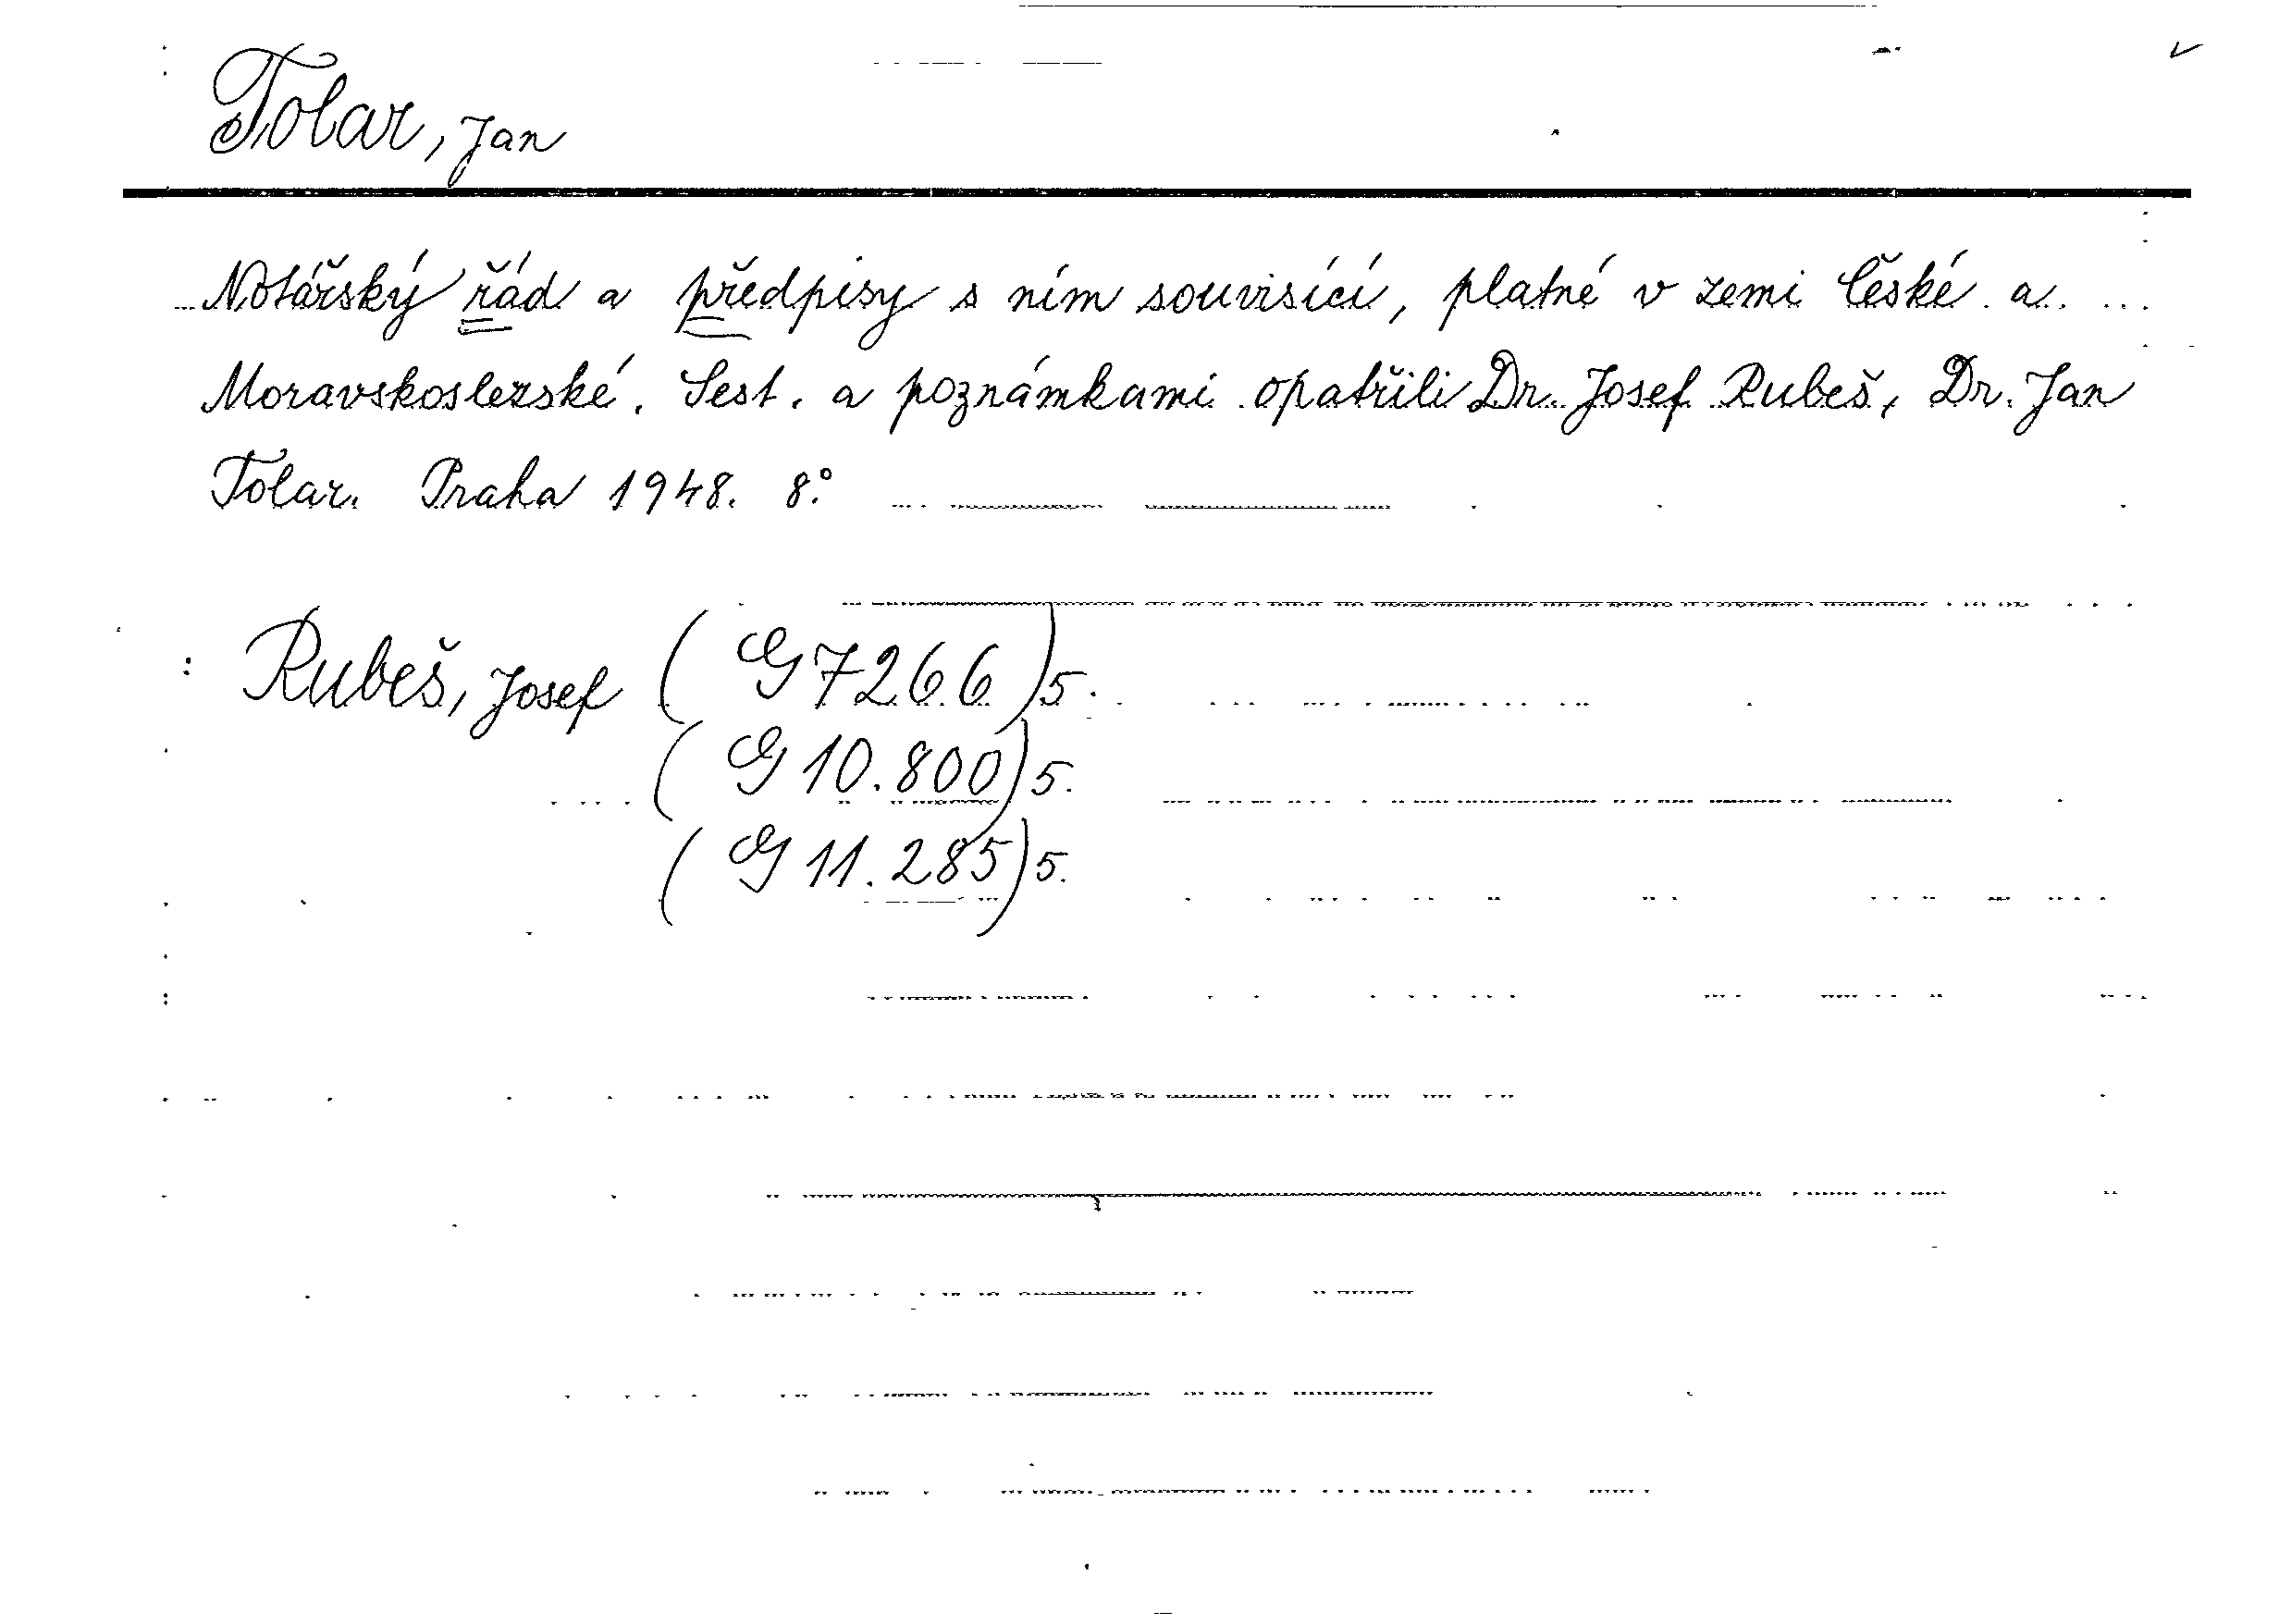 Tolar, Jan
Notářský řád a předpisy s ním souvisící, platné v zemi České a
Moravskoslezské. Sest. a poznámkami opatřili Dr. Josef Rubeš, Dr. Jan
Tolar. Praha 1948. 8°.
Rubeš, Josef (G 7266) 5.
(G 10.800) 5.
(G 11.285) 5.